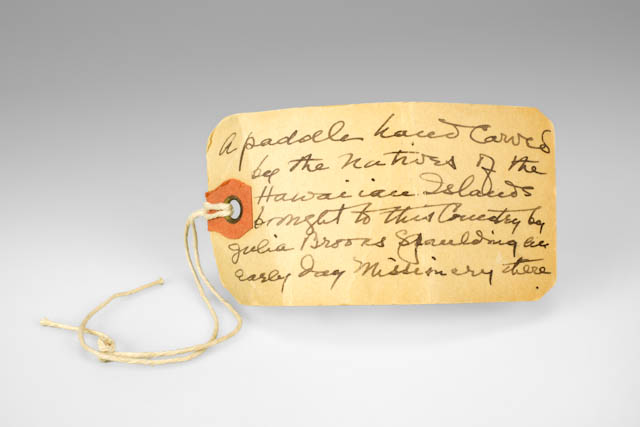 A paddle hand Carved
by the Natives of the
Hawaiian Islands
brought to this Country by
Julia Brooks Spaulding an
early day Missionery there